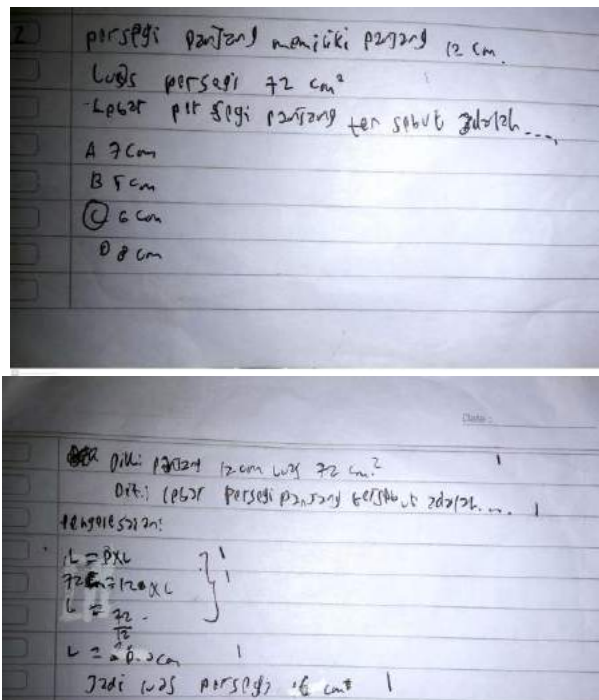 2 persegi panjang memiliki panjang 12 cm.
Luas persegi 72 cm²
Lebar persegi panjang tersebut adalah ....
A 7 cm
B 5 cm
C 6 cm
D 8 cm
Date :
Dik: panjang 12 cm luas 72 cm²
Dit: lebar persegi panjang tersebut adalah.... 1
1
L = P x L 1
72 = 12 x L 1
L = 72
12
L = cm 1
Jadi luas persegi 6 cm 1